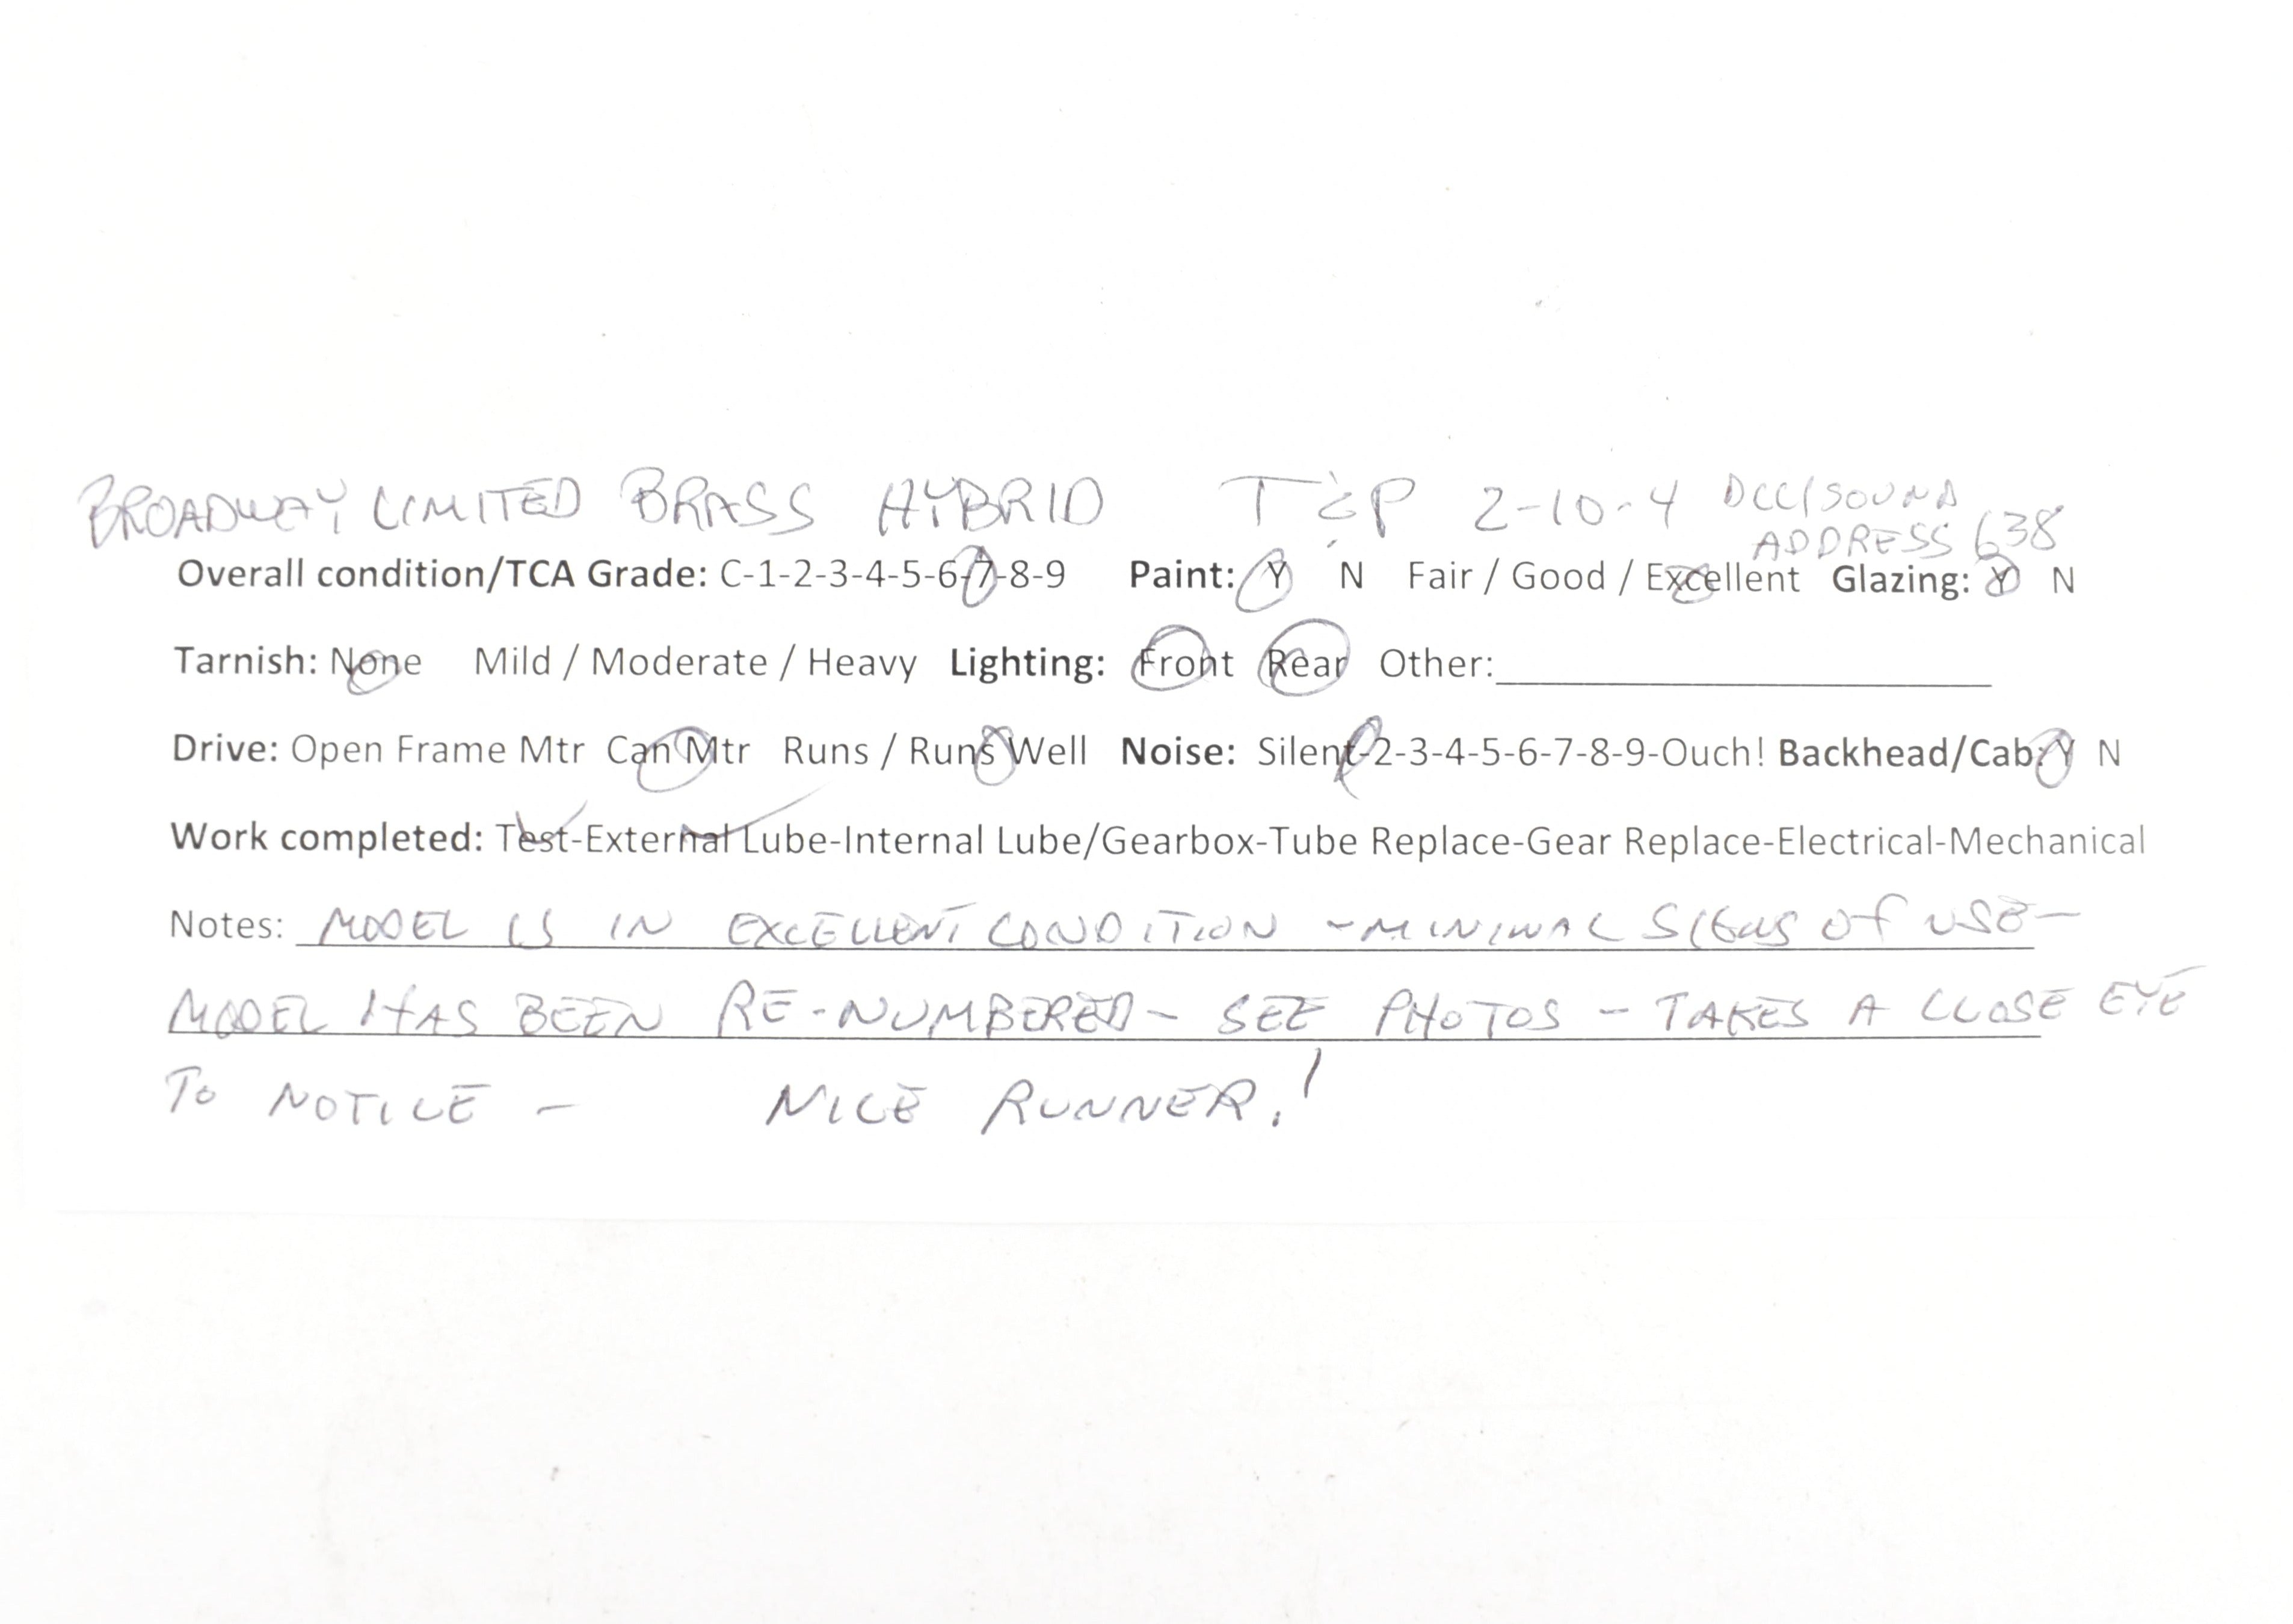 BROADWAY LIMITED BRASS HYBRID T&P 2-10-4 DCC/SOUND
ADDRESS 638
Overall condition/TCA Grade: C-1-2-3-4-5-6-7-8-9 Paint: Y N Fair / Good / Excellent Glazing: Y N
Tarnish: None Mild / Moderate / Heavy Lighting: Front Rear Other:
Drive: Open Frame Mtr Can Mtr Runs / Runs Well Noise: Silent-2-3-4-5-6-7-8-9-Ouch! Backhead/Cab: Y N
Work completed: Test-External Lube-Internal Lube/Gearbox-Tube Replace-Gear Replace-Electrical-Mechanical
Notes: MODEL IS IN EXCELLENT CONDITION - MINIMAL SIGNS OF USE -
MODEL HAS BEEN RE-NUMBERED - SEE PHOTOS - TAKES A CLOSE EYE
TO NOTICE - NICE RUNNER!